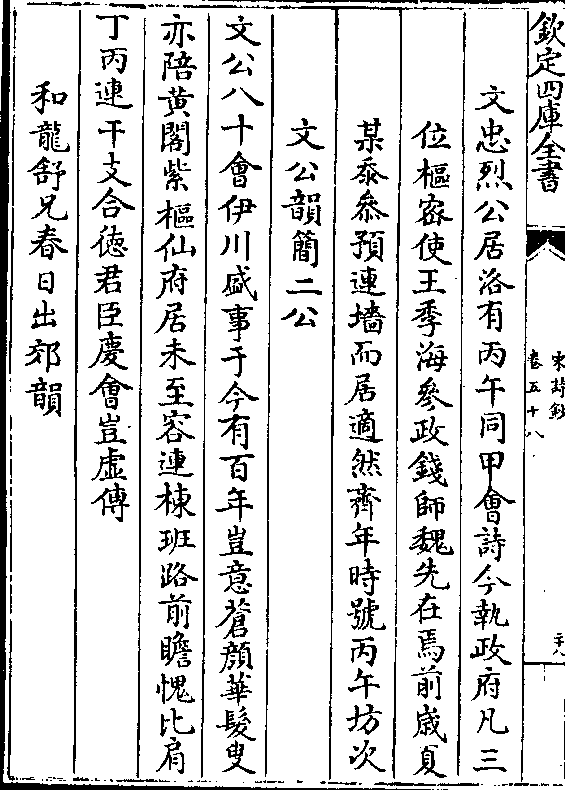 欽定四庫全書
宋詩鈔
卷五十八
文忠烈公居洛有丙午同甲會詩今執政府凡三
位樞密使王季海參政錢師魏先在焉前歲夏
某忝叅預連墻而居適然齊年時號丙午坊次
文公韻簡二公
文公八十會伊川盛事于今有百年豈意蒼顔華髮叟
亦陪黃閣紫樞仙府居未至容連棟班路前瞻愧比肩
丁丙連干支合徳君臣慶會豈虛傳
和龍舒兄春日出郊韻